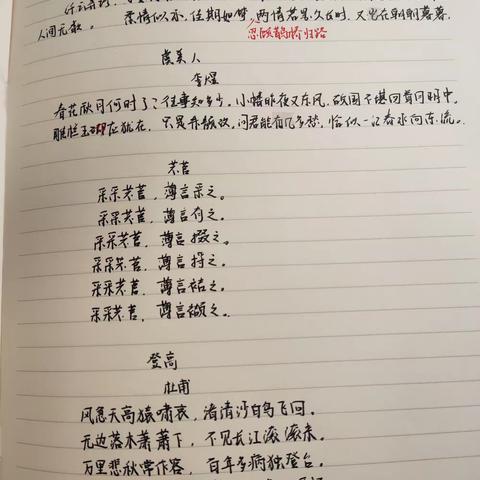 柔情似水,佳期如梦,两情若是久长时,又岂在朝朝暮暮。
人间无数。
忍顾鹊桥归路
虞美人
李煜
春花秋月何时了?往事知多少。小楼昨夜又东风,故国不堪回首月明中。
雕栏玉砌应犹在,只是朱颜改。问君能有几多愁,恰似一江春水向东流。
芣苢
采采芣苢,薄言采之。
采采芣苢,薄言有之。
采采芣苢,薄言掇之。
采采芣苢,薄言捋之。
采采芣苢,薄言袺之。
采采芣苢,薄言襭之。
登高
杜甫
风急天高猿啸哀,渚清沙白鸟飞回。
无边落木萧萧下,不见长江滚滚来。
万里悲秋常作客,百年多病独登台。